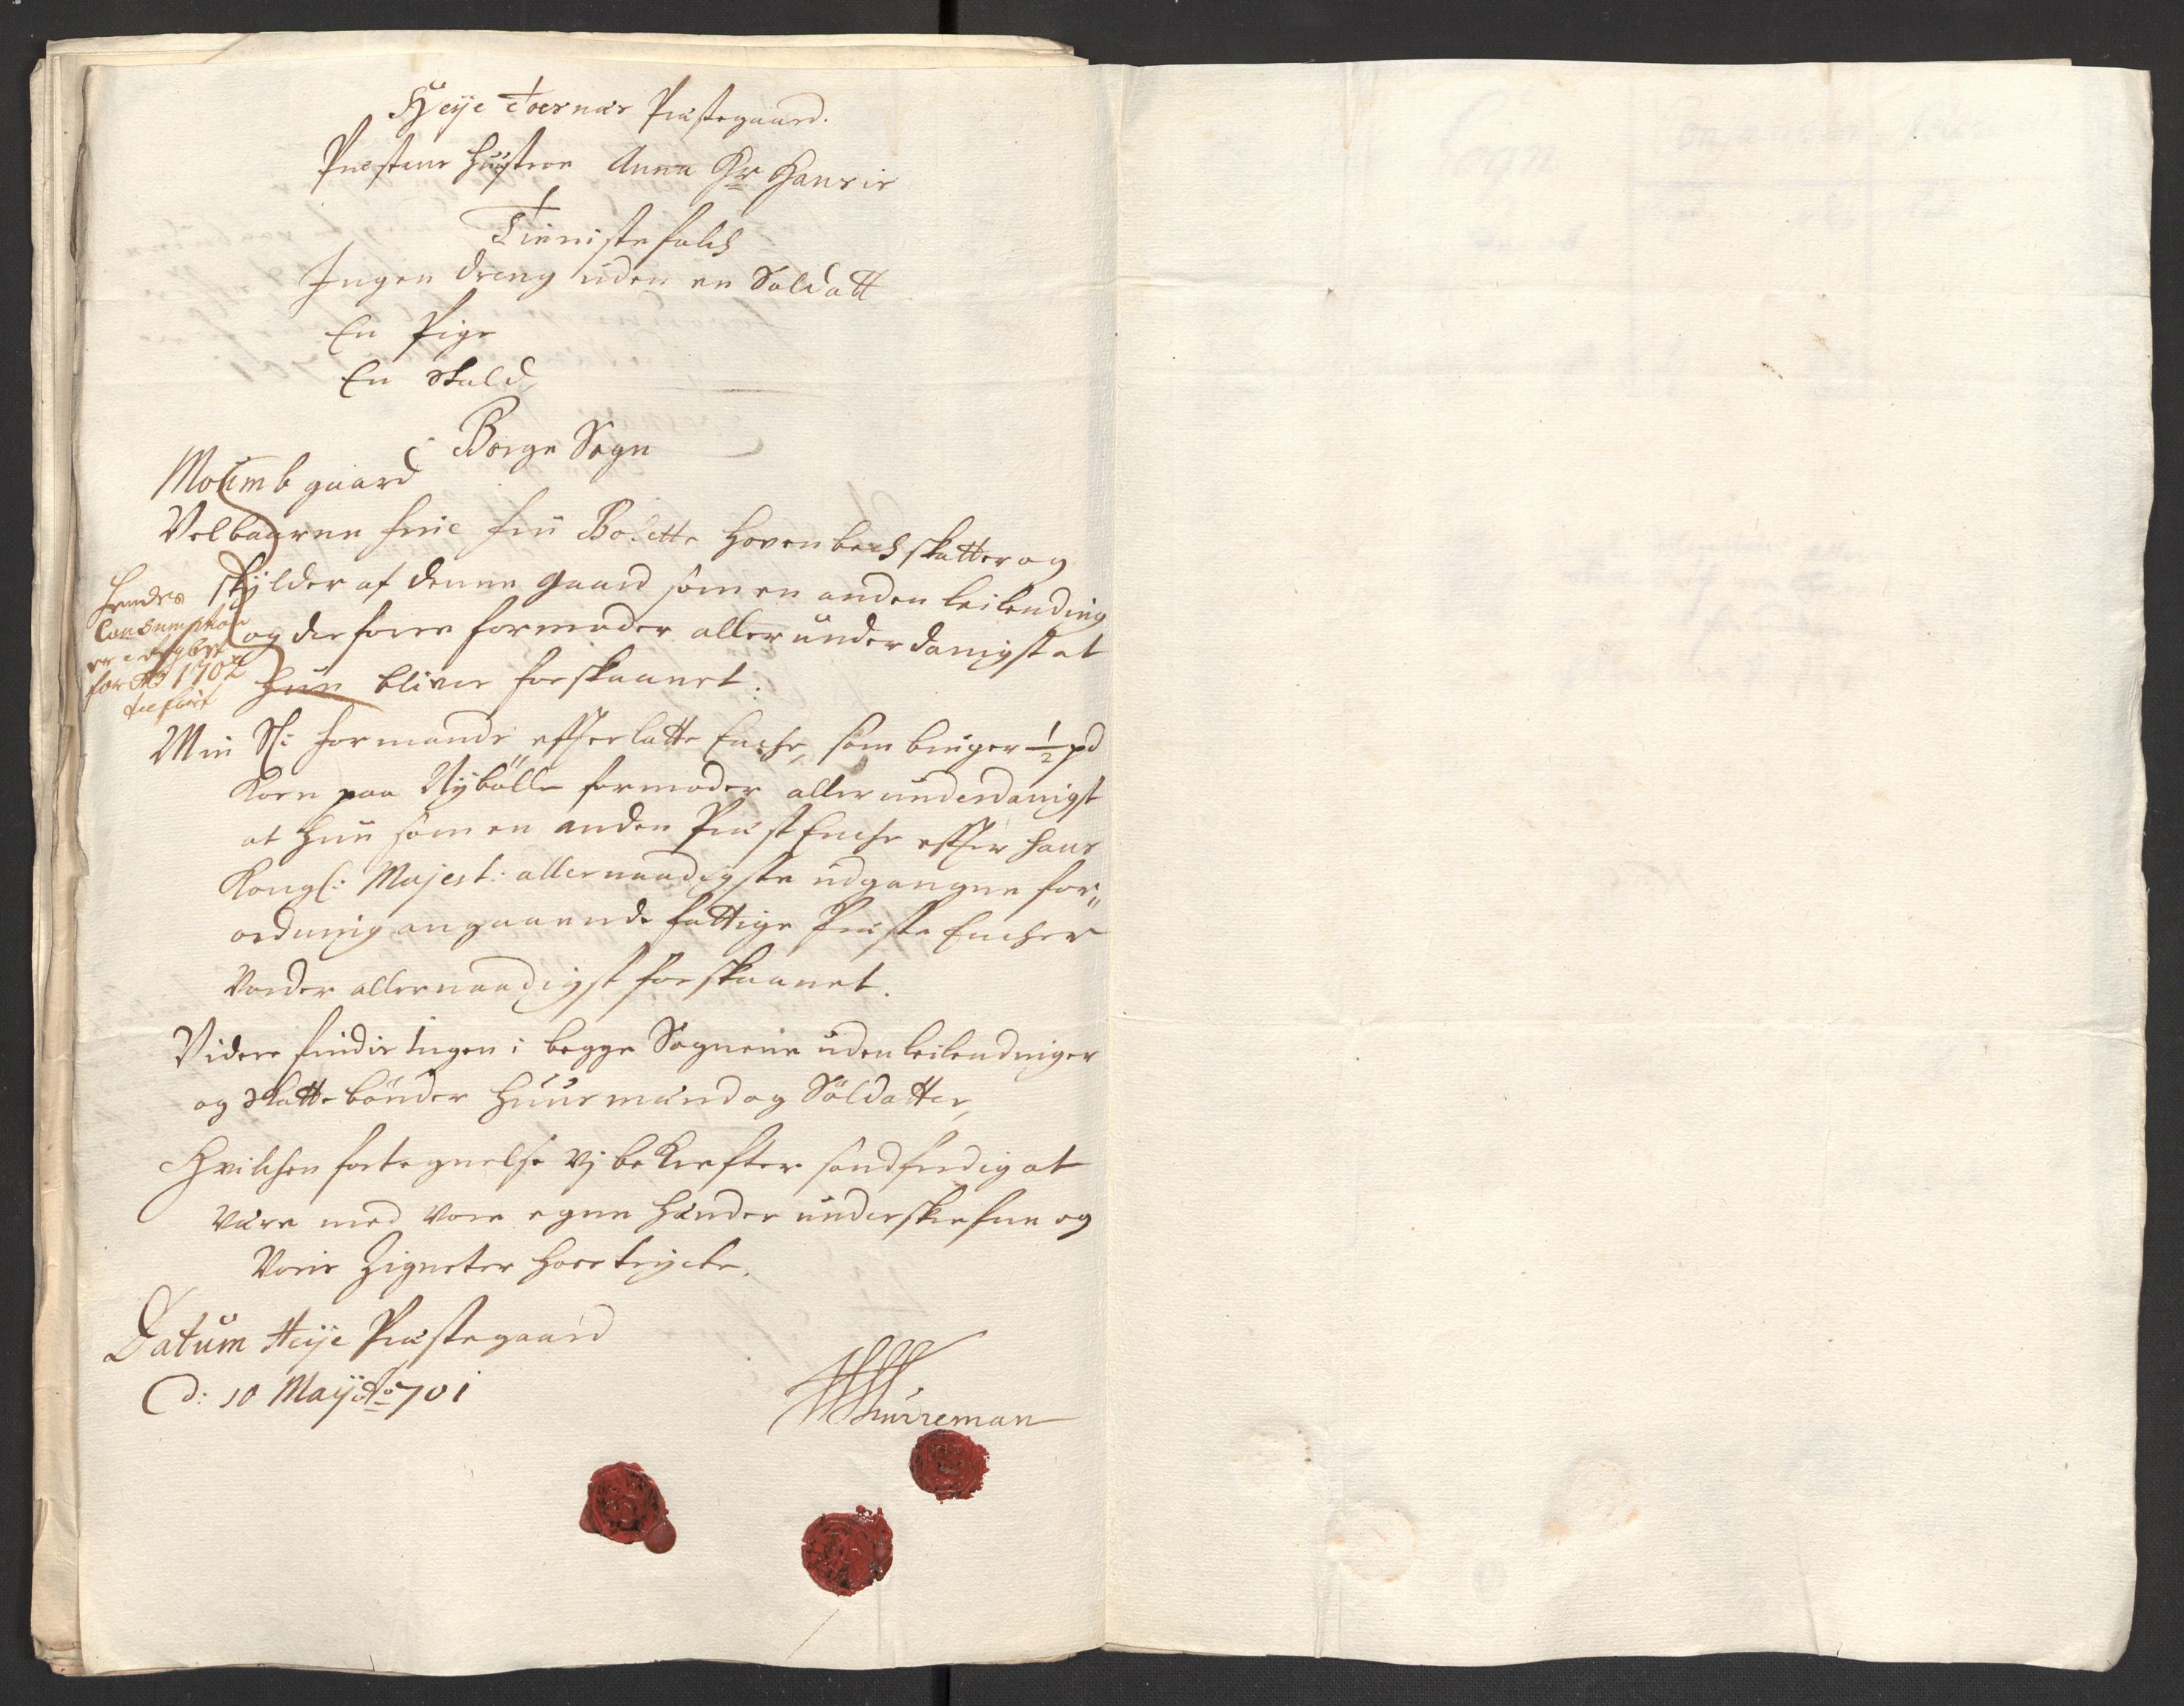 Præstegaard.
Præstens Hustroe Anna
Tienistefolch
Ingen dreng uden en Soldatt
En Pige
En
Borge Sogn
gaard
Velbaarne frue Bolette Hovenbech skatter og
skylder af denne gaard som en anden leilending
og derfore formoder allerunderdanigst at
hun bliver forskaanet.
Hendes
Consumption
er
for Ao 1702
tilført
Min Sl: formands efterlatte Enche, som bruger ½ pd
Korn paa Nybølle formoder allerunderdanigst
at hun som en anden Præst Enche efter hans
Kongl: Majest: allernaadigste udgangne for„
ordning angaaende fattige Præste Encher
vorder allernaadigst forskaanet.
Videre findis ingen i begge Sognene uden leilendinger
og skatte bønder huusmænd og Soldatter,
Hvilchen fortegnelse vj bekrefter sandferdig at
være med vore egne hænder underskrefne og
voris Zigneter hoostrycte.
Datum Heije Præstegaard
d: 10 Maij Ao 701